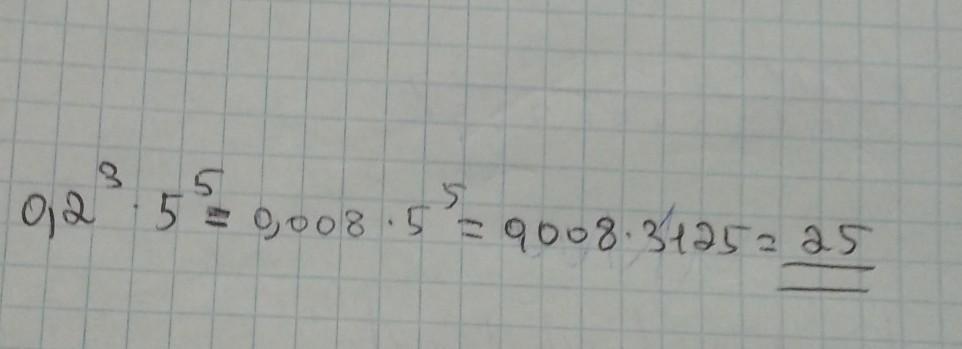 0,2³ · 5⁵ = 0,008 · 5⁵ = 0,008 · 3125 = 25